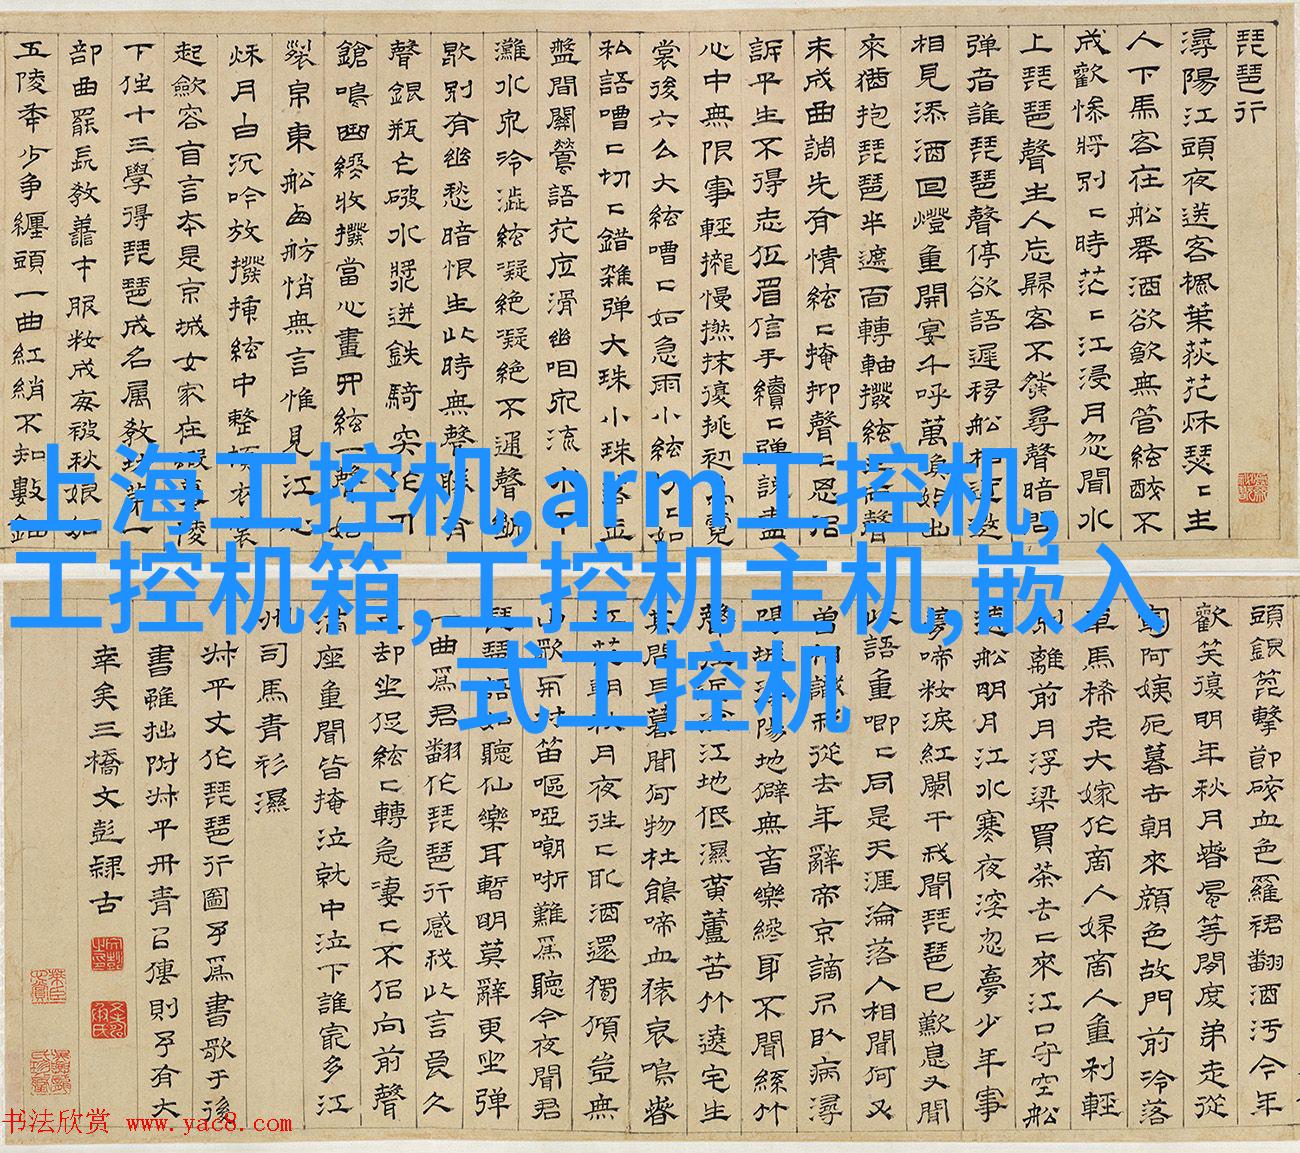 琵琶行
潯陽江頭夜送客楓葉荻花秋瑟〻主
人下馬客在船舉酒欲飲無管絃醉不
成歡慘將別〻時茫〻江浸月忽聞水
上琵琶聲主人忘歸客不發尋聲暗問
彈者誰琵琶聲停欲語遲移船相近邀
相見添酒回燈重開宴千呼萬喚始出
來猶抱琵琶半遮面轉軸撥絃聲
未成曲調先有情絃〻掩抑聲〻思似
訴平生不得志低眉信手續〻彈說盡
心中無限事輕攏慢撚抹復挑初為霓
裳後六么大絃嘈〻如急雨小絃〻如
私語嘈〻切〻錯雜彈大珠小珠落玉
盤間關鶯語花底滑幽咽泉流水下
灘水泉冷澁絃凝絕凝絕不通聲漸
歇別有幽愁暗恨生此時無聲勝有
聲銀瓶乍破水漿迸鉄騎突出刀
鎗鳴曲終收撥當心畫四絃一聲如
裂帛東船西舫悄無言惟見江心
秋月白沉吟放撥插絃中整頓衣裳
起斂容自言本是京城女家在蝦蟇陵
下住十三學得琵琶成名属教坊第一
部曲罷長教善才服粧成每被秋娘妒
五陵年少争纏頭一曲紅綃不知數鈿
上海工控机,arm工控机,
工控机箱,工控机主机,嵌入
式工控机
頭銀篦擊節碎血色羅裙翻酒污今年
歡笑復明年秋月春風等閑度弟走從
軍阿姨死暮去朝來顔色故門前冷落
車馬稀老大嫁作商人婦商人重利輕
別離前月浮梁買茶去〻來江口守空船
遶船明月江水寒夜深忽夢少年事
夢啼粧淚紅闌干我聞琵琶已歎息又聞
此語重唧〻同是天涯淪落人相聞何必
曾相識我從去年辭帝京謫居臥病潯
陽城潯陽地僻無音樂終歲不聞絲竹
聲住近湓江地低濕黄蘆苦竹遶宅生
其間旦暮聞何物杜鵑啼血猿哀鳴春
江花朝秋月夜往〻取酒還獨傾豈無
山歌與村笛嘔啞嘲哳難爲聽今夜聞君
琵琶語如聽仙樂耳暫明莫辭更坐彈
一曲爲君翻作琵琶行感我此言良久
立却坐促絃〻轉急凄〻不似向前聲
滿座重聞皆掩泣就中泣下誰寂多江
州司馬青衫濕
叔平丈作琵琶行圖予爲書歌于後
書雖拙附叔平丹青以傳則予有大
幸矣三橋文彭隷古
书法欣赏 www.yac8.com